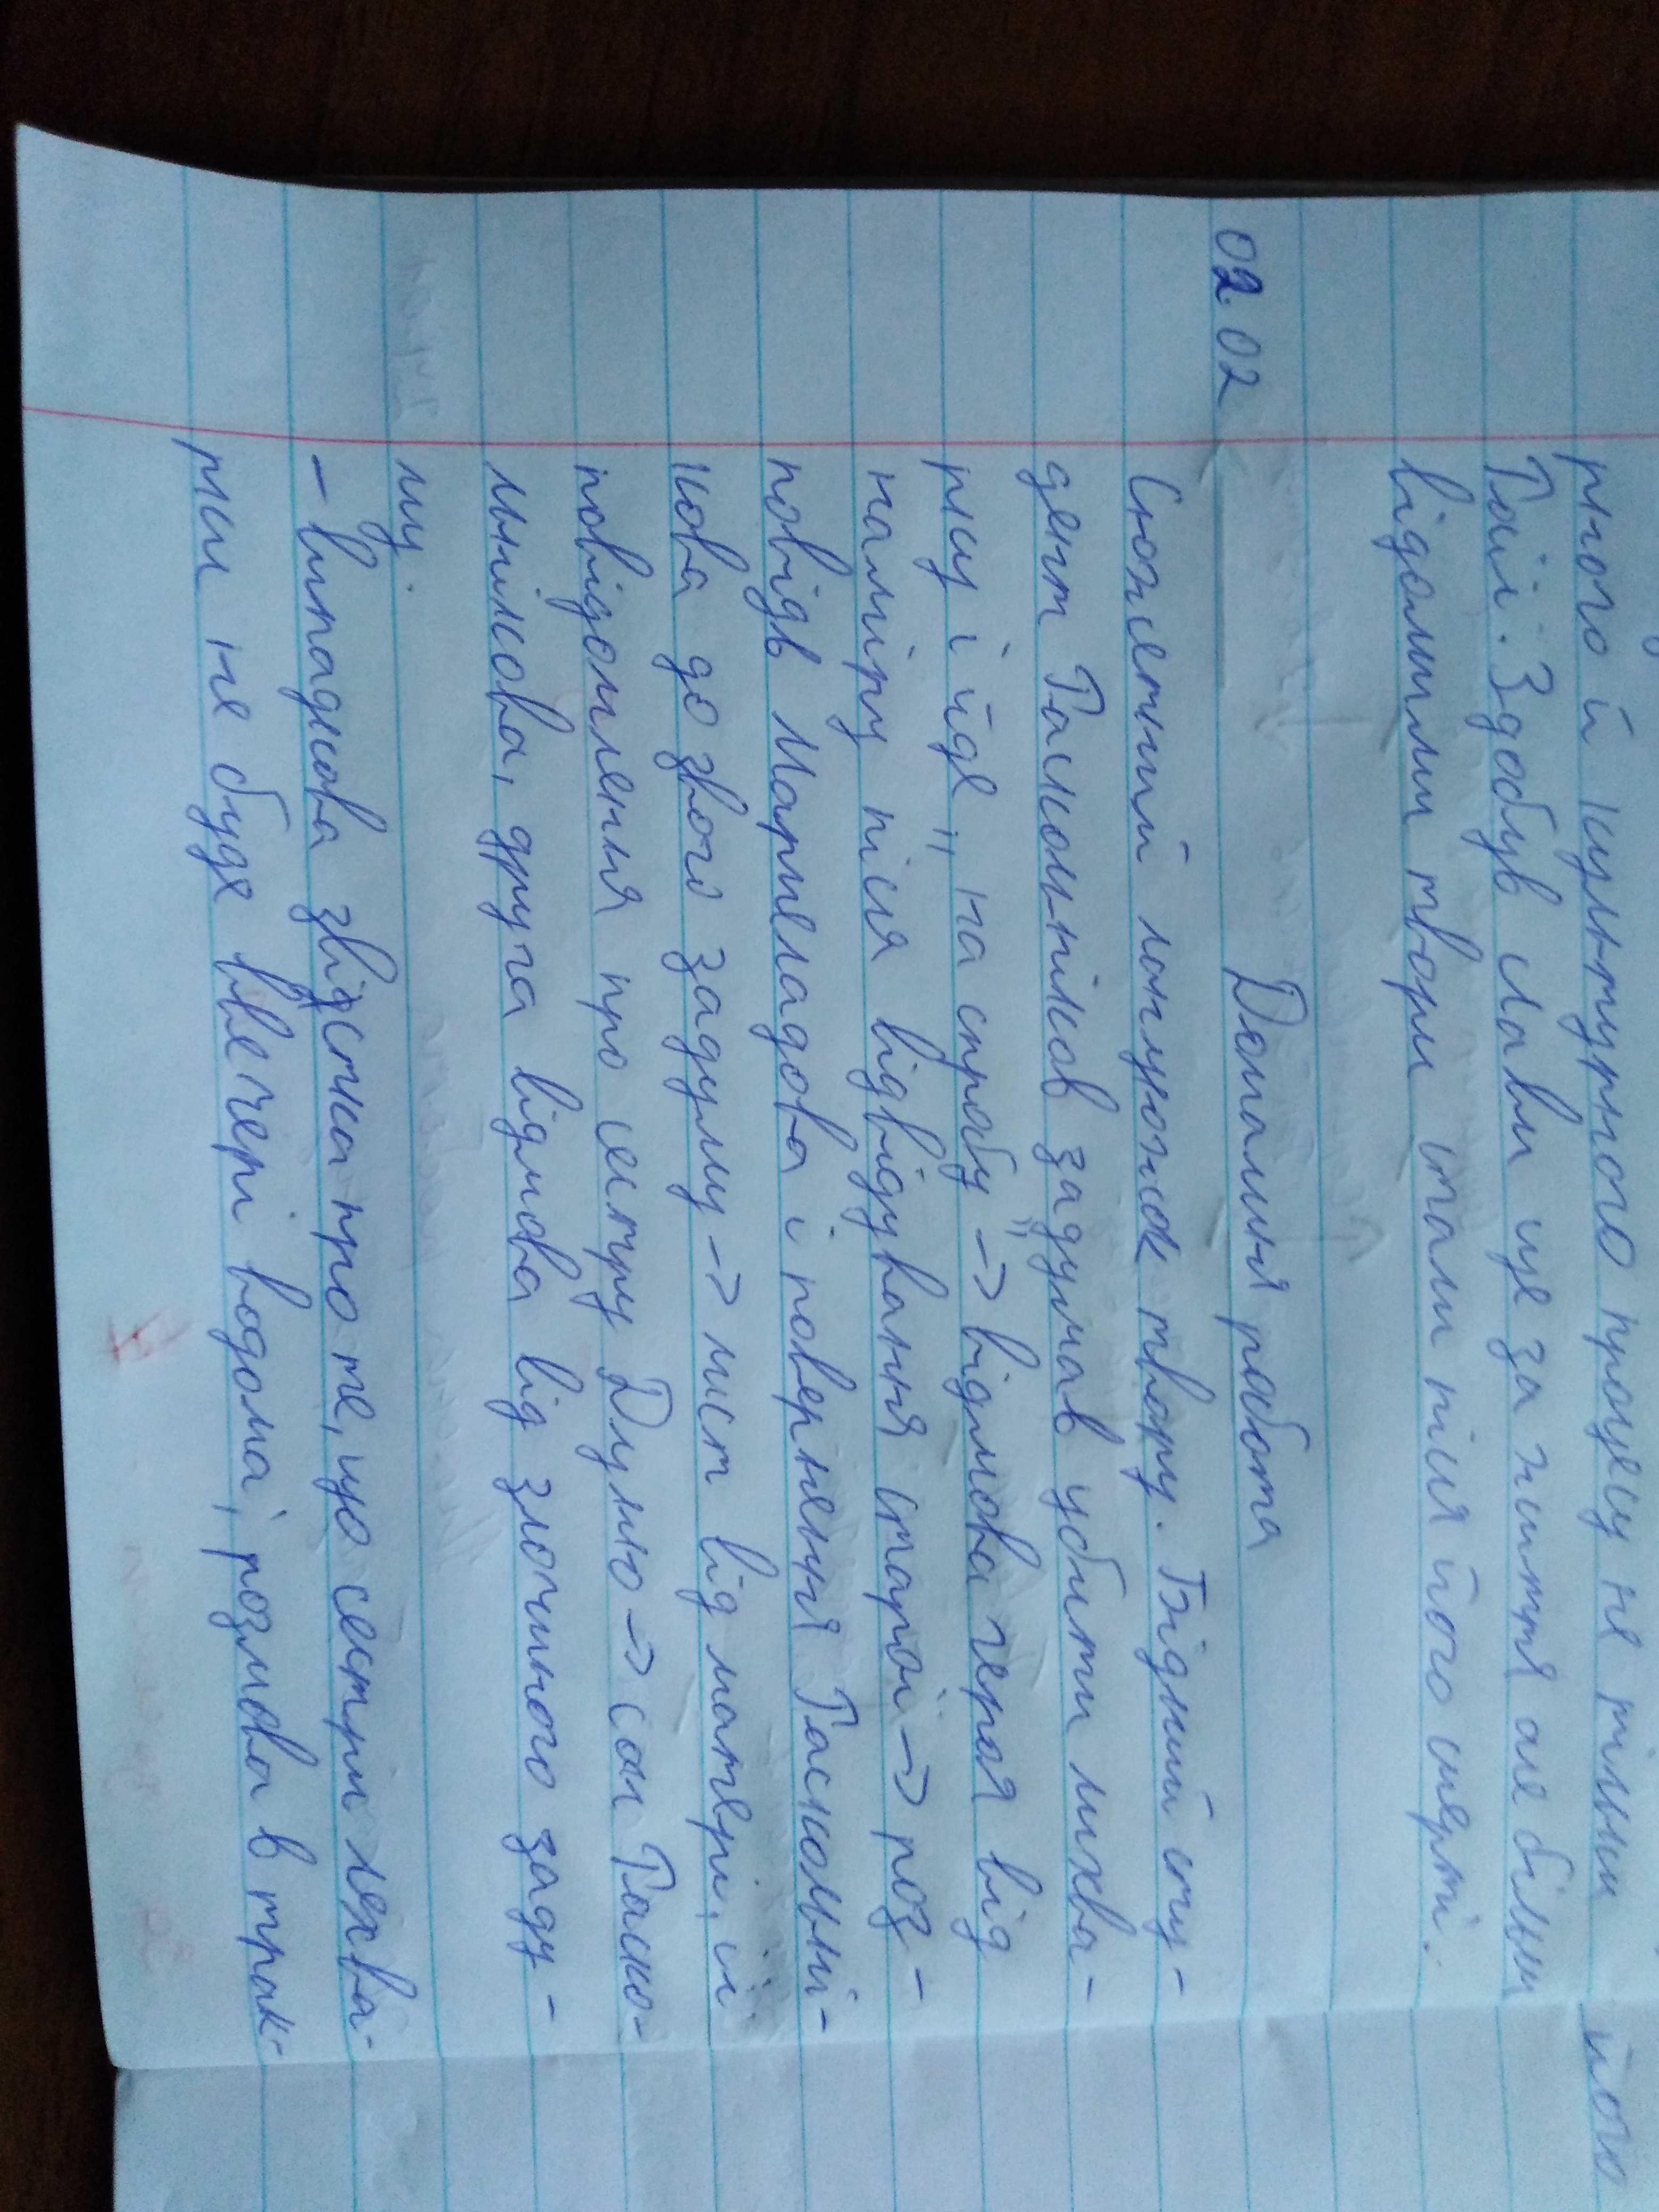 рного й культурного процесу не тільки
Росії. Здобув слави ще за життя але більш
відомими твори стали після його смерті.
02.02
Домашня робота
Сюжетний ланцюжок твору. Бідний сту-
дент Раскольніков задумав убити лихва-
рку і йде „на спробу” -> відмова героя від
наміру після відвідування старої -> роз-
повідь Мармеладова і повернення Раскольні-
кова до свого задуму -> лист від матері, її
повідомлення про сестру Дуню -> сон Раско-
льнікова, друга відмова від злочинного заду-
му.
- випадкова звістка про те, що сестри лехва-
рки не буде ввечері вдома, розмова в трак-
його